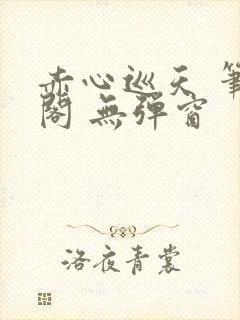 赤心巡天 筆
閣 無彈窗
洛夜青裳